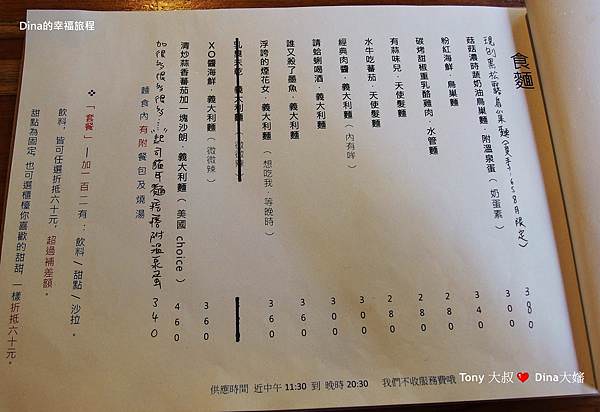 Dina的幸福旅程
食麵
現刨黑松露鳥巢麵(夏季:6.5.8月限定) 380
菇菇濃蒔蔬奶油鳥巢麵.附溫泉蛋(奶蛋素) 300
粉紅海鮮.鳥巢麵 340
碳烤甜椒重乳酪雞肉.水管麵 280
有蒜味兒.天使髮麵 280
水牛吃蕃茄.天使髮麵 280
經典肉醬.義大利麵(內有哞) 300
請蛤蜊喝酒.義大利麵 300
誰又殺了墨魚.義大利麵 360
浮誇的煙花女.義大利麵(想吃我.等晚時) 360
義大利麵
XO醬海鮮.義大利麵(微微辣) 360
清炒蒜香蕃茄加一塊沙朗.義大利麵(美國choice) 460
加限
附溫泉蛋 340
麵食內有附餐包及燒湯
❖「套餐」—加一百二有:飲料/甜點/沙拉。
飲料,皆可任選折抵六十元,超過補差額。
甜點為固定,也可選櫃檯你喜歡的甜甜,一樣折抵六十元。
供應時間 近中午11:30 到 晚時20:30 我們不收服務費哦
Tony 大叔❤Dina大嬸